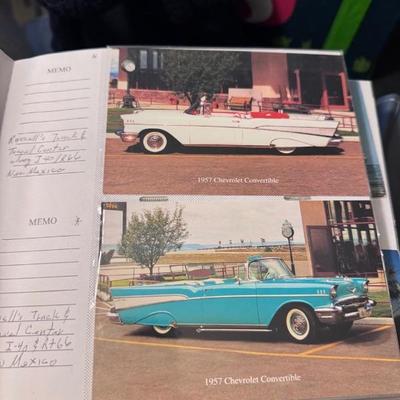 MEMO
Russell's Truck &
Travel Center
I-40/Rt 66
New Mexico
1957 Chevrolet Convertible
MEMO
ll's Truck &
Center
I-40 & Rt 66
Mexico
1957 Chevrolet Convertible